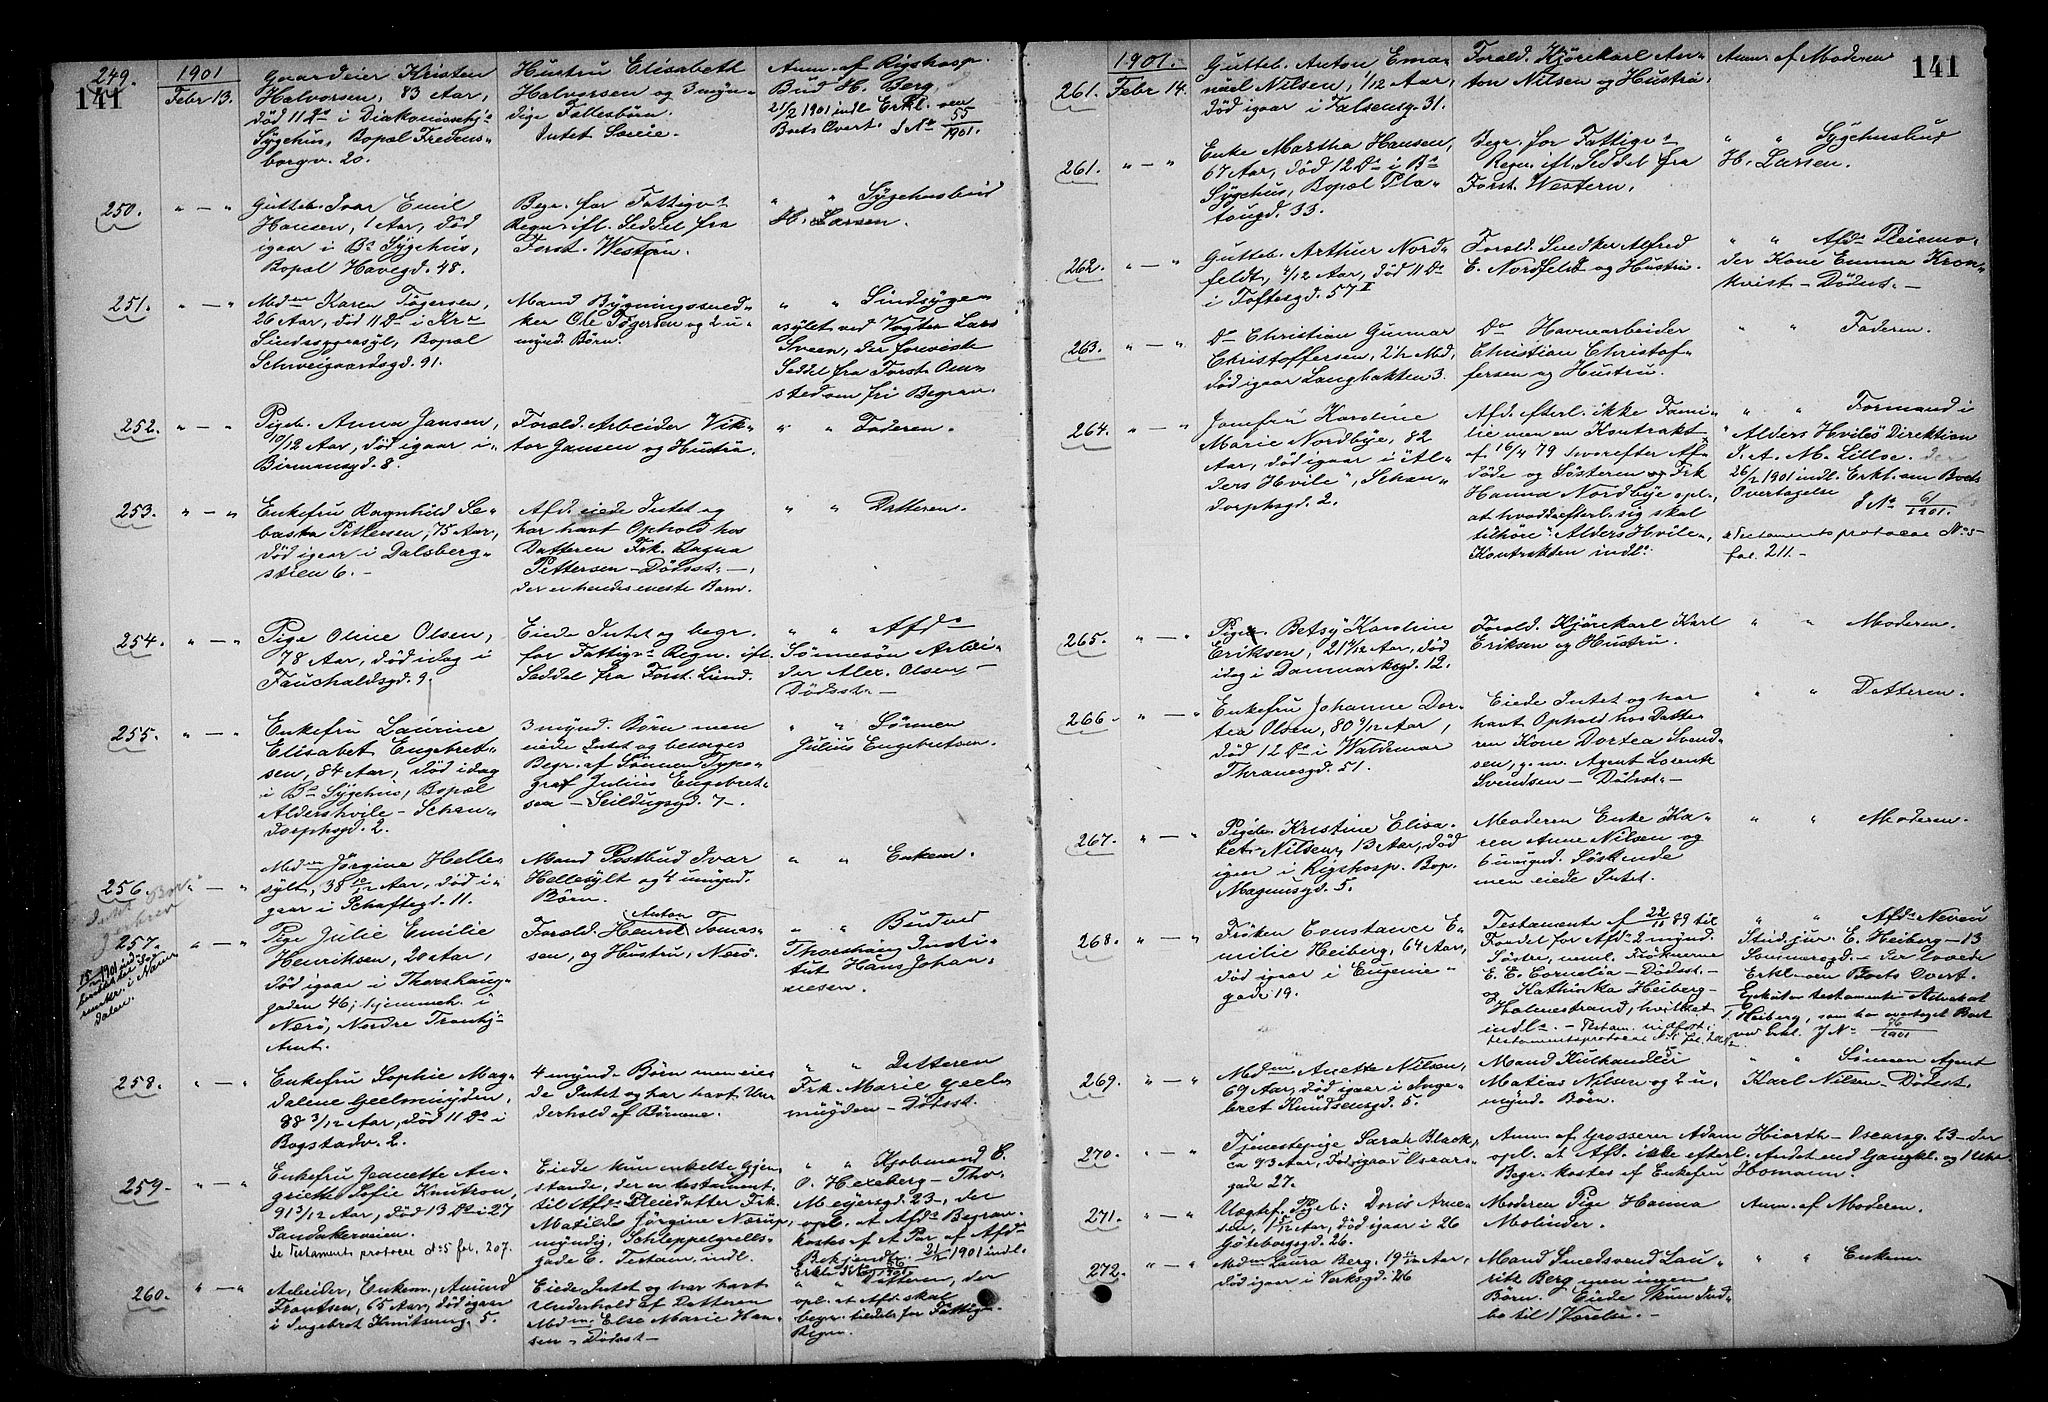 141
249. 1901 Febr 13.
Gaardeier Kristen
Halvorsen, 83 Aar,
død 11 Ds i Diakonissehj.s
Sygehus, Bopæl Fredens-
borgv. 20.
Hustru Elisabeth
Halvorsen og 3 myn-
dige Fællesbørn.
Intet Særeie.
Anm. af Rigshosp.
Bud H. Berg.
21/2 1901 indl. Erkl. om
Boets Overt. J No 55/1901.
250. " — "
Gutteb. Ivar Emil
Hansen, 1 Aar, død
igaar i Bs Sygehus,
Bopæl Havegd. 48.
Begr. for Fattigv.s
Regn. ifl. Seddel fra
Forst. Western.
" " Sygehusbud
H. Larsen.
251. " — "
Madm Karen Tøgersen,
26 Aar, død 11 Ds i Kra
Sindssygeasyl, Bopæl
Schweigaardsgd. 91.
Mand Bygningssned-
ker Ole Tøgersen og 2 u-
mynd. Børn.
" " Sindsyge-
asylet ved Vogter Lars
Sveen, der foreviste
Seddel fra Forst. Om-
sted om fri Begrav.
252. " — "
Pigeb. Anna Jansen,
10/12 Aar, død igaar i
Birmansgd. 8.
Forald. Arbeider Vik-
tor Jansen og Hustru.
" " Faderen.
253. " — "
Enkefru Ragnhild Se-
baska Pettersen, 75 Aar,
død igaar i Dalsberg-
stien 6. -
Afd. eiede Intet og
har havt Ophold hos
Datteren Frk. Ragna
Pettersen - Dødsst. -,
der er hendes eneste Barn.
" " Datteren.
254. " — "
Pige Oline Olsen,
78 Aar, død idag i
Fauchaldsgd. 9.
Eiede Intet og begr.
for Fattigv.s Regn. ifl.
Seddel fra Forst. Lund.
" " Afds
Sønnesøn Arbei-
der Alex. Olsen -
Dødsst. -
255. " — "
Enkefru Laurine
Elisabet Engebret-
sen, 84 Aar, død idag
i Bs Sygehus, Bopæl
Aldershvile - Schan-
dorphsgd. 2.
3 mynd. Børn men
eiede Intet og besørges
Begr. af Sønnen Typo-
graf Julius Engebret-
sen - Seildugsgd. 7 -.
" " Sønnen
Julius Engebretsen.
256. " — "
Madm Jørgine Helle-
sylt, 38 10/12 Aar, død i-
gaar i Schaftegd. 11.
Mand Postbud Ivar
Hellesylt og 4 umynd.
Børn.
" " Enkem.
257. " — "
Pige Julie Emilie
Henriksen, 20 Aar,
død igaar i Thorshaug-
gaden 46, hjemmeh. i
Nærø, Nordre Trondhj.s
Amt.
Forald. Henrik Anton Tomas-
sen, og Hustru, Nærø.
" " Bud ved
Thorshaug Insti-
tut Hans Johan-
nesen.
258. " — "
Enkefru Sophie Mag-
dalene Geelmuyden,
88 3/12 Aar, død 11 Ds i
Bogstadv. 2.
4 mynd. Børn men eie-
de Intet og har havt Un-
derhold af Børnene.
" " Datteren
Frk. Marie Geel-
muyden - Dødsst.
259. " — "
Enkefru Jeanette An-
griette Sofie Knutzon,
91 3/12 Aar, død 13 Ds i 27
Sandakerveien.
se Testaments protocol No 5 fol. 207.
Eiede kun enkelte Gjen-
stande, der er testament.
til Afds Pleiedatter Frk.
Matilde Jørgine Nærup,
myndig, Schleppegrells-
gade 6. Testam. indl.
" " Kjøbmand C.
O. Hexeberg - Tho.
Meyersgd. 23 -, der
opl. at Afds Begrav.
kostes af et Par af Afds
Bekjendte. 21/2 1901 indl.
260. " — "
Arbeider, Enkem., Amund
Frantsen, 65 Aar, død igaar
i Ingebret Knutsensg. 5.
Eiede Intet og har havt
Underhold af Datteren
Madm Else Marie Han-
sen - Dødsst -
" " Datteren, der
opl. at Afd. skal
begr. for Fattigv.
Regn.
141
1901.
261. Febr 14.
Gutteb. Anton Ema-
nuel Nilsen, 1/12 Aar,
død igaar i Falsensg. 31.
Forald. Kjørekarl An-
ton Nilsen og Hustru.
Anm. af Moderen
261. " — "
Enke Martha Hansen,
67 Aar, død 12 Ds i Bs
Sygehus, Bopæl Pla-
tougd. 33.
Begr. for Fattigv.s
Regn. ifl. Seddel fra
Forst. Western.
" " Sygehusbud
H. Larsen.
262. " — "
Gutteb. Arthur Nord-
feldt, 4/12 Aar, død 11 Ds
i Toftesgd. 57 II
Forald. Snedker Alfred
E. Nordfeldt og Hustru.
" " Afds Pleiemo-
der Kone Emma Kron-
kvist - Dødsst. -
263. " — "
Do Christian Gunnar
Christoffersen, 2½ Md,
død igaar Langbakken 3.
Do Havnearbeider
Christian Christof-
fersen og Hustru.
" " Faderen.
264. " — "
Jomfru Karoline
Marie Nordbye, 82
Aar, død igaar i "Al-
ders Hvile", Schan-
dorphsgd. 2.
Afd. efterl. ikke Fami-
lie men en Kontrakt
af 16/4 79 hvorefter Af-
døde og Søsteren Frk
Hanna Nordbye opl.
at hvad de efterl. sig skal
tilhøre "Alders Hvile".
Kontrakten indl.
" " Formand i
"Alders Hviles" Direktion
J. A. M. Lilloe.
26/2 1901 indl. Erkl. om Boets
Overtagelse
J No 61/1901.
Testaments protocol No 5
fol. 211. -
265. " — "
Pigeb. Betsy Karoline
Eriksen, 2 1/12 Aar, død
idag i Danmarksgd. 12.
Forald. Kjørekarl Karl
Eriksen og Hustru.
" " Moderen.
266. " — "
Enkefru Johanne Dor-
tea Olsen, 80 9/12 Aar,
død 12 Ds i Waldemar
Thranesgd. 51.
Eiede Intet og har
havt Ophold hos Datte-
ren Kone Dortea Svend-
sen, g. m. Agent Lorentz
Svendsen - Dødsst. -
" " Datteren.
267. " — "
Pigeb. Kristine Elisa-
bet Nilsen, 13 Aar, død
igaar i Rigshosp. Bop.
Magnusgd. 5.
Moderen Enke Ka-
ren Anne Nilsen og
6 umynd. Søskende
men eiede Intet.
" " Moderen.
268. " — "
Frøken Constance E-
milie Heiberg, 64 Aar,
død igaar i Eugenie-
gade 19.
Testamente af 22/11 89 til
Fordel for Afds 2 mynd.
Søstre, neml. Frøknerne
E. E. Cornelia - Dødsst. -
og Kathinka Heiberg -
Holmestrand, hvilket
indl. - Testam. indført i
testamentsprotocol
" " Afds Neveu
Stud. jur. E. Heiberg - 13
Sommersgd. - der lovede
Erkl. om Boets Overt.
Exekutor testamenti Advokat
Heiberg, som har overtaget Boet
ved Erkl. J No 76/1901
269. " — "
Madm Anette Nilsen,
69 Aar, død igaar i Inge-
bret Knudsensgd. 5.
Mand Kulhandler
Matias Nilsen og 2 u-
mynd. Børn.
" " Sønnen Agent
Karl Nilsen - Dødsst.
270. " — "
Tjenestepige Sarah Black,
ca 73 Aar, død igaar i Oscars-
gade 27.
Anm. af Grosserer Adam Hiorth - Oscarsg. 23 - der
opl. at Afd. ikke efterl. Andet end Gangkl. og 1 Uhr
Begr. kostes af Enkefru Homann.
271. " — "
Uægtef. Pigeb: Doris Arne-
sen, 1 5/12 Aar, død igaar i 26
Göteborgsgd. 26.
Moderen Pige Hanna
Molinder.
Anm. af Moderen.
272. " — "
Madm Laura Berg, 19 11/12 Aar,
død igaar i Verksgd. 26
Mand Smedsvend Lau-
ritz Berg men ingen
Børn. Eiede kun Ind-
bo til 1 Værelse. -
" " Enkem.